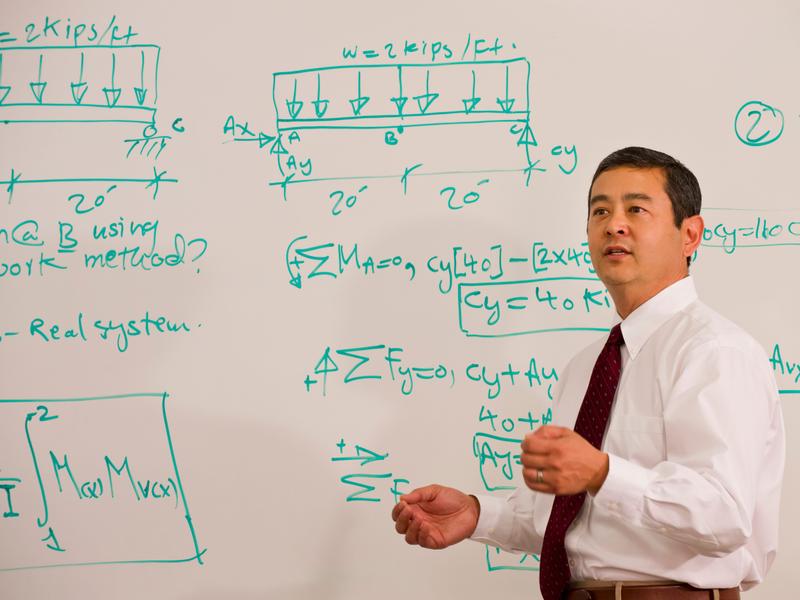 = 2 Kips/ft
C
20'
n @ B using
work method?
- Real system.
I ∫ 2 1 M(x) M v(x)
w = 2 kips/ft.
Ax A B C
Ay Cy
20' 20'
+ ∑ MA=0, Cy[40] - [2x40
Cy = 40 Ki
+ ∑ Fy=0, Cy + Ay
40 + A
Ay=
+ ∑ F
2
Cy=40
Av